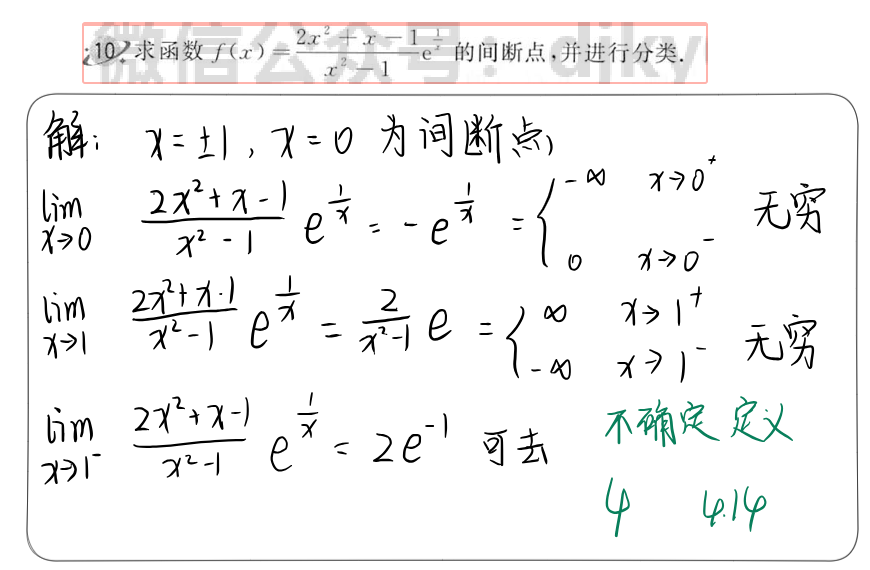 微信公众号:djky
10. 求函数 f(x) = \frac{2x^2+x-1}{x^2-1}e^{\frac{1}{x}} 的间断点,并进行分类.
解: x=±1, x=0 为间断点,
\lim_{x→0} \frac{2x^2+x-1}{x^2-1} e^{\frac{1}{x}} = -e^{\frac{1}{x}} = { -∞ x→0^+ ; 0 x→0^- 无穷
\lim_{x→1} \frac{2x^2+x-1}{x^2-1} e^{\frac{1}{x}} = \frac{2}{x^2-1} e = { ∞ x→1^+ ; -∞ x→1^- 无穷
\lim_{x→1^-} \frac{2x^2+x-1}{x^2-1} e^{\frac{1}{x}} = 2e^{-1} 可去
不确定 定义
4 4.14